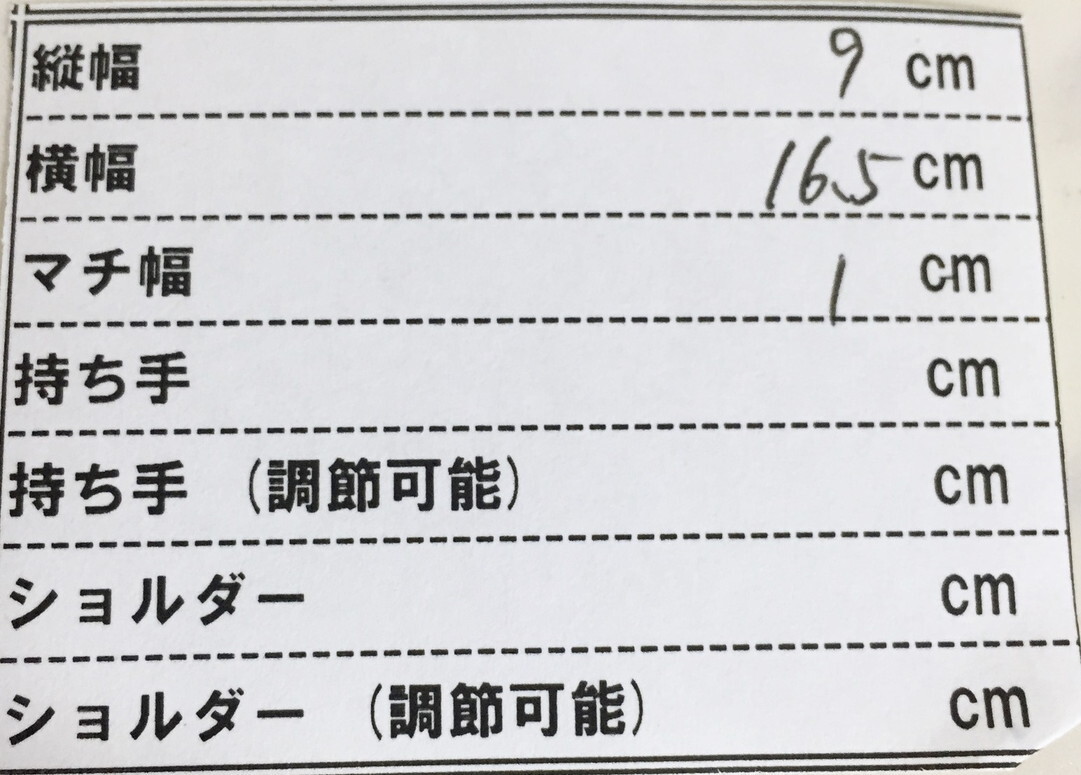 縦幅 9 cm
横幅 16.5 cm
マチ幅 1 cm
持ち手 cm
持ち手 (調節可能) cm
ショルダー cm
ショルダー (調節可能) cm